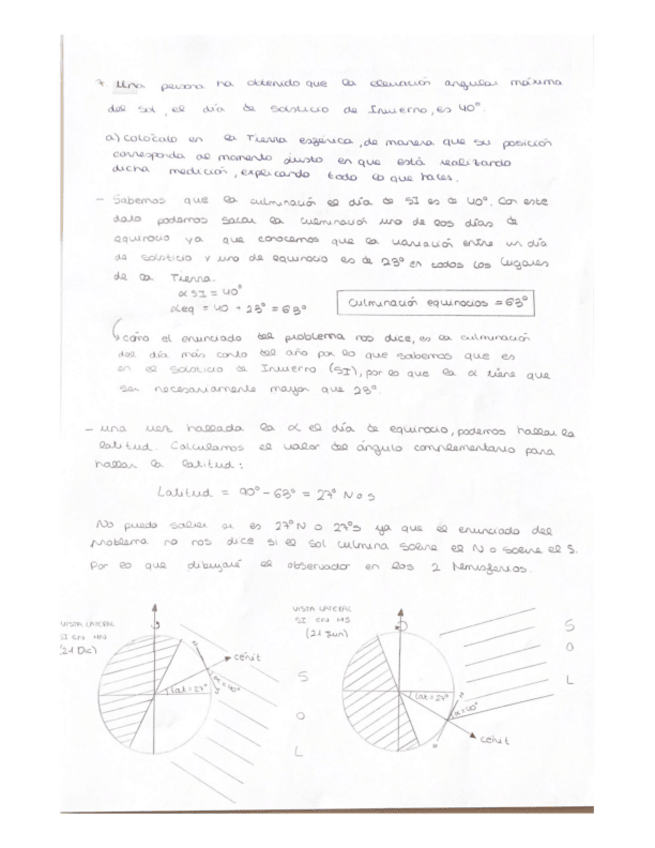 7. Una persona ha obtenido que la elevación angular máxima
del sol, el día de solsticio de Invierno, es 40°.
a) Colócalo en la Tierra esférica, de manera que su posición
corresponda al momento justo en que está realizando
dicha medición, explicando todo lo que haces.
- Sabemos que la culminación el día de SI es de 40°. Con este
dato podemos sacar la culminación uno de los días de
equinocio ya que conocemos que la variación entre un día
de solsticio y uno de equinocio es de 23° en todos los lugares
de la Tierra.
α SI = 40°
αeq = 40 + 23° = 63°
Culminación equinocios = 63°
como el enunciado del problema nos dice, es la culminación
del día más corto del año por lo que sabemos que es
en el Solsticio de Invierno (SI), por lo que la α tiene que
ser necesariamente mayor que 23°.
- una vez hallada la α el día de equinocio, podemos hallar la
latitud. Calculamos el valor del ángulo complementario para
hallar la latitud:
Latitud = 90° - 63° = 27° N o S
No puedo saber si es 27°N o 27°S ya que el enunciado del
problema no nos dice si el sol culmina sobre el N o sobre el S.
Por lo que dibujaré el observador en los 2 hemisferios.
VISTA LATERAL
SI en HN
(21 Dic)
N
cénit
α=40°
lat=27°
S
S
O
L
VISTA LATERAL
SI en HS
(21 Jun)
lat=27°
N
α=40°
cénit
S
O
L